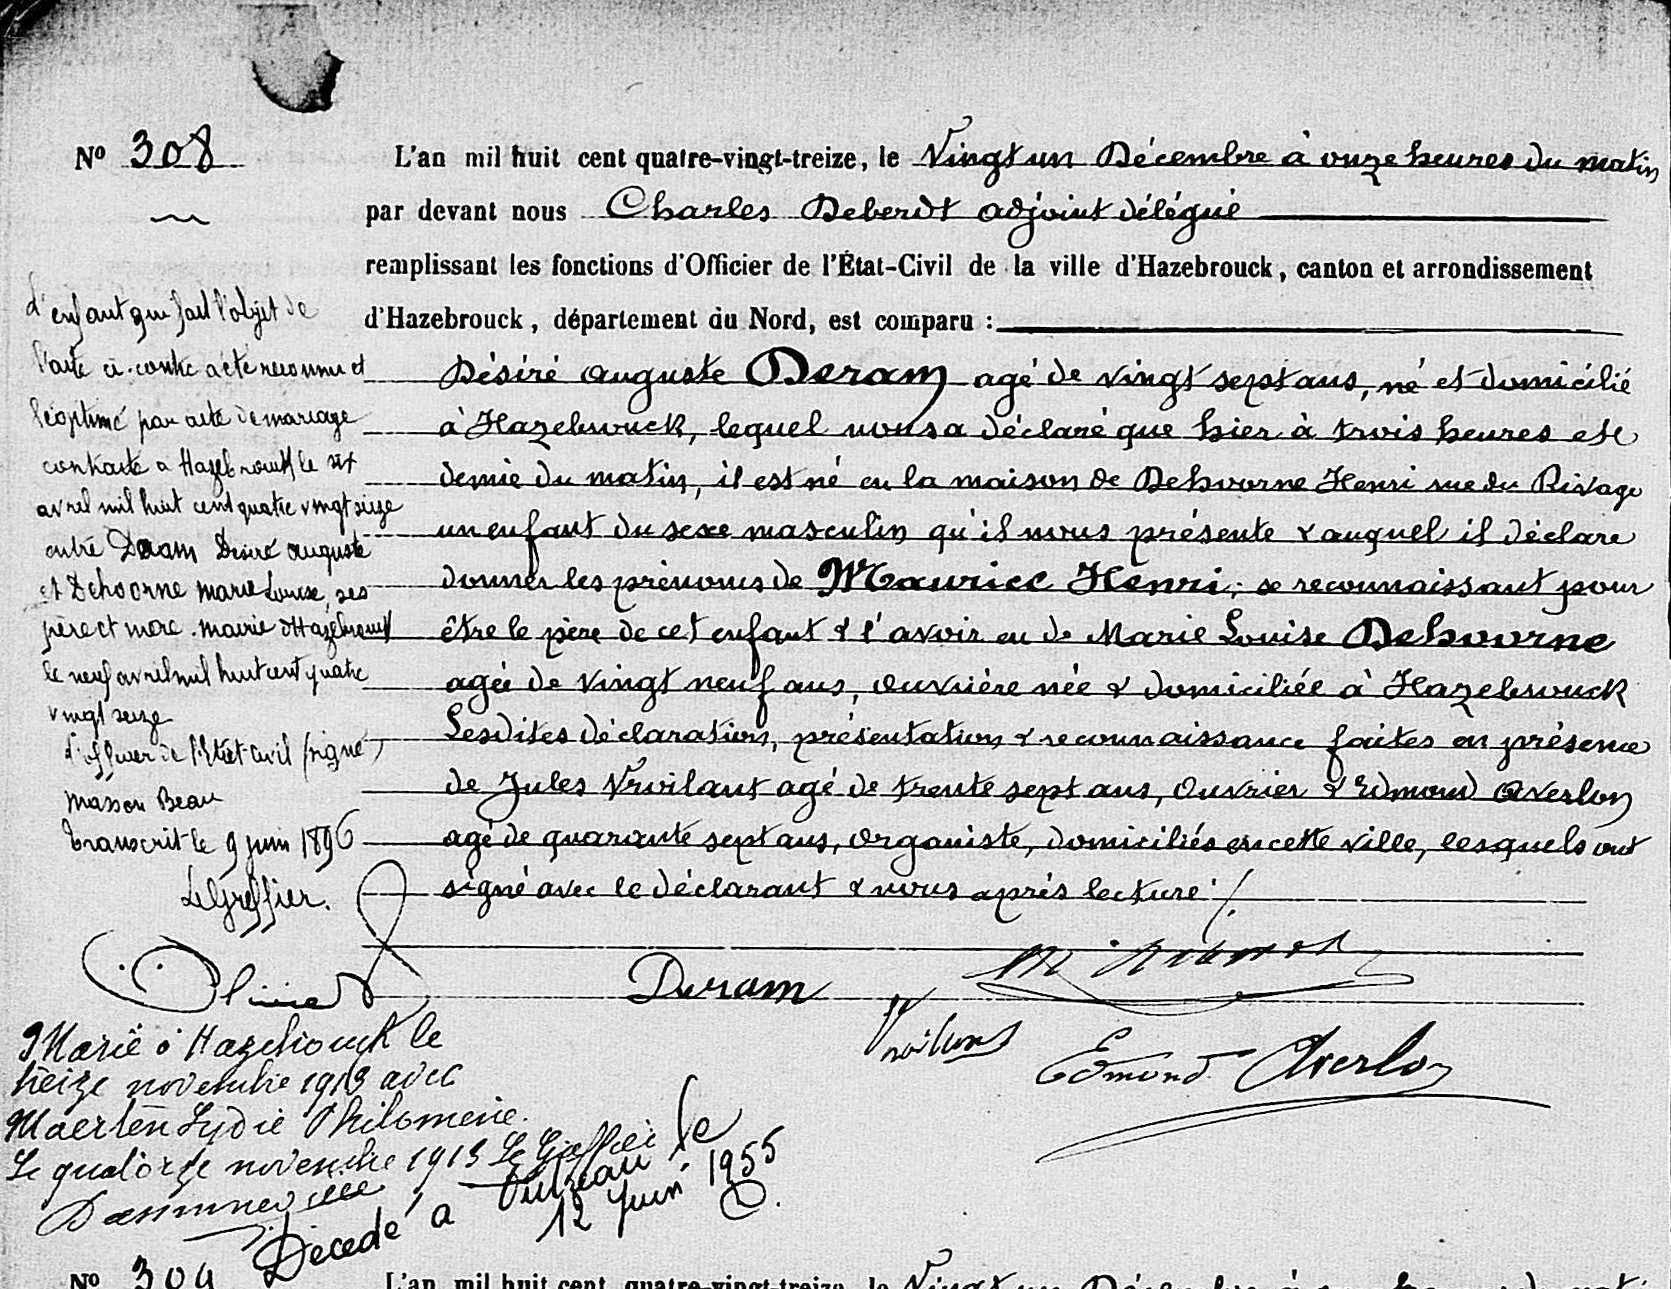 Nº 308
L'an mil huit cent quatre-vingt-treize, le Vingt un Décembre à onze heures du matin
par devant nous Charles Deberdt adjoint délégué
remplissant les fonctions d'Officier de l'État-Civil de la ville d'Hazebrouck, canton et arrondissement
d'Hazebrouck, département du Nord, est comparu :
Désiré auguste Deram agé de vingt sept ans, né et domicilié
à Hazebrouck, lequel nous a déclaré que hier à trois heures et
demie du matin, il est né en la maison de Dehoorne Henri rue du Rivage
un enfant du sexe masculin qu'il nous présente & auquel il déclare
donner les prénoms de Maurice Henri; se reconnaissant pour
être le père de cet enfant & l'avoir eu de Marie Louise Dehoorne
agée de vingt neuf ans, ouvrière née & domiciliée à Hazebrouck
Lesdites déclaration, présentation & reconnaissance faites en présence
de Jules Vroilant agé de trente sept ans, ouvrier & Edmond Averlon
agé de quarante sept ans, organiste, domiciliés en cette ville, lesquels ont
signé avec le déclarant & nous après lecture ./.
L'enfant qui fait l'objet de
l'acte ci-contre a été reconnu et
légitimé par acte de mariage
contracté a Hazebrouck le six
avril mil huit cent quatre vingt seize
entre Deram Désiré auguste
et Dehoorne marie Louise, ses
père et mère. mairie d'Hazebrouck
le neuf avril mil huit cent quatre
vingt seize
L'officier de l'Etat-civil (signé)
Masson Beau
Transcrit le 9 juin 1896
Le Greffier.
Deram
Edmond Averlon
Marié à Hazebrouck le
treize novembre 1913 avec
Maerten Lydie Philomène.
Le quatorze novembre 1913 Le Greffier
Décédé à le
12 Juin 1955
Nº 309
L'an mil huit cent quatre-vingt-treize, le Vingt un Décembre à